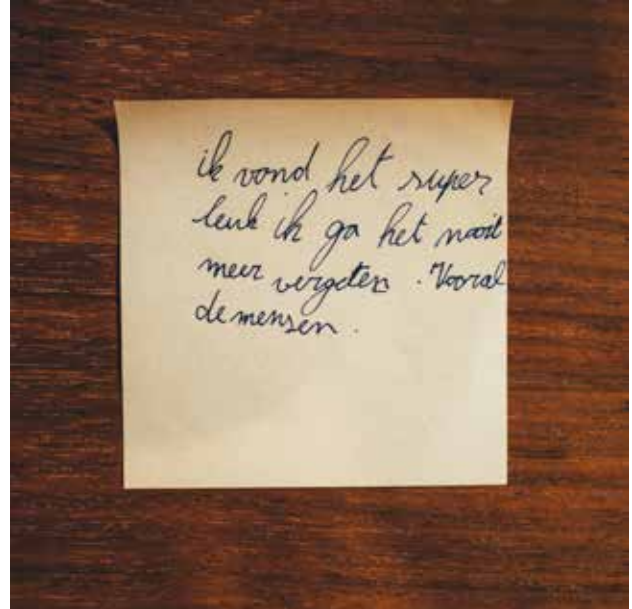 ik vond het super
leuk ik ga het nooit
meer vergeten. Vooral
de mensen.